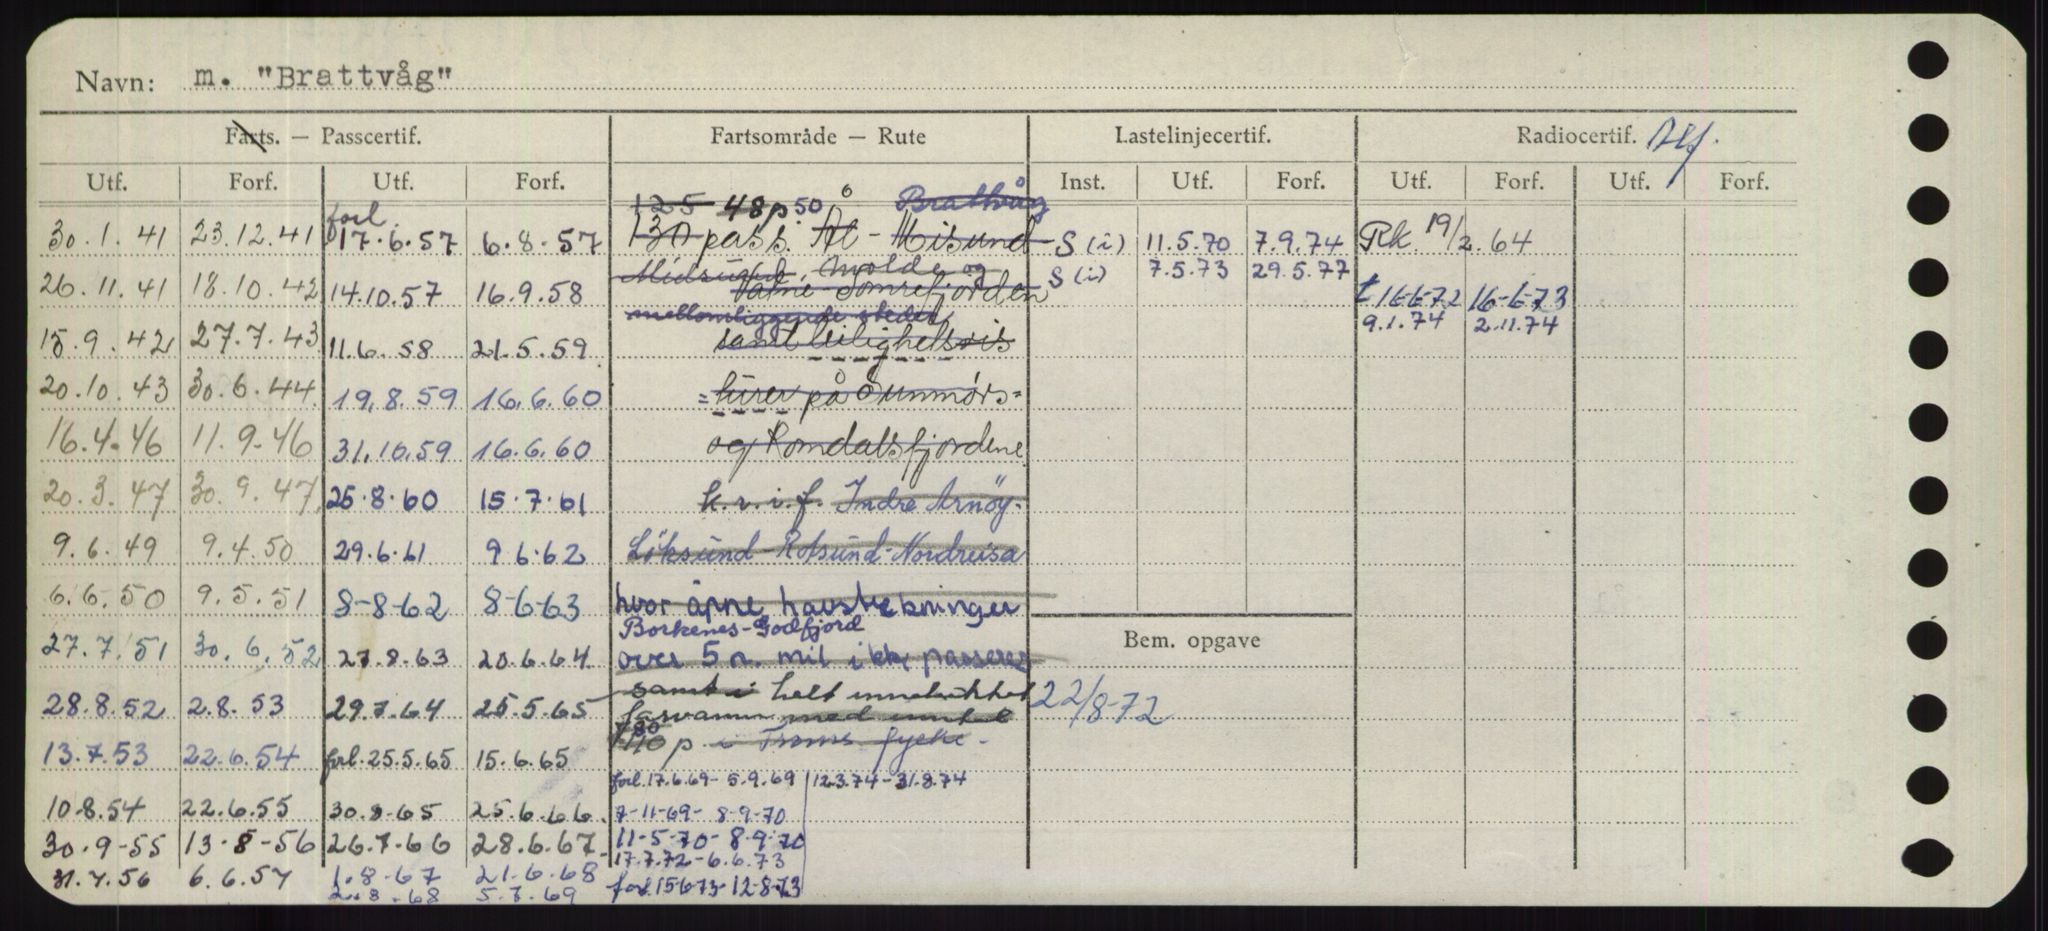 Navn: m. "Brattvåg"
Farts. — Passcertif. Fartsområde — Rute Lastelinjecertif. Radiocertif.
Utf. Forf. Utf. Forf. Inst. Utf. Forf. Utf. Forf. Utf. Forf.
125 48 p 50 Brattvåg
30.1.41 23.12.41 forl. 17.6.57 6.8.57 130 pass. - Misund S (i) 11.5.70 7.9.74 Rk. 19/2.64
Midsund, Molde og S (i) 7.5.73 29.5.77
26.11.41 18.10.42 14.10.57 16.9.58 Vatne Tomrefjorden t 16-6-72 16-6-73
mellomliggende steder 9.1.74 2.11.74
15.9.42 27.7.43 11.6.58 21.5.59 samt leilighetsvis
20.10.43 30.6.44 19.8.59 16.6.60 = turer på Sunnmørs=
16.4.46 11.9.46 31.10.59 16.6.60 og Romdalsfjordene
20.3.47 30.9.47 25.8.60 15.7.61 k.r.i.f. Indre Arnöy-
9.6.49 9.4.50 29.6.61 9.6.62 Löksund-Rotsund-Nordreisa
6.6.50 9.5.51 8-8-62 8-6-63 hvor åpne havstrekninger
Borkenes-Godfjord Bem. opgave
27.7.51 30.6.52 27.8.63 20.6.64 over 5 n. mil ikke passeres
samt i helt innelukket
28.8.52 2.8.53 29.7.64 25.5.65 farvann med inntil 22/8-72
13.7.53 22.6.54 forl. 25.5.65 15.6.65 p. i Troms fylke.
forl. 17.6.69 - 5.9.69 12.3.74 - 31.8.74
10.8.54 22.6.55 30.8.65 25.6.66. 7-11-69 - 8-9-70
30.9-55 13.8-56 26.7.66 28.6.67. 11-5-70 - 8.9.70
17.7.72 - 6.6.73
31.7.56 6.6.57 1.8-67 21.6.68 forl. 15673 - 12-8-73
2.8.68 5.7.69